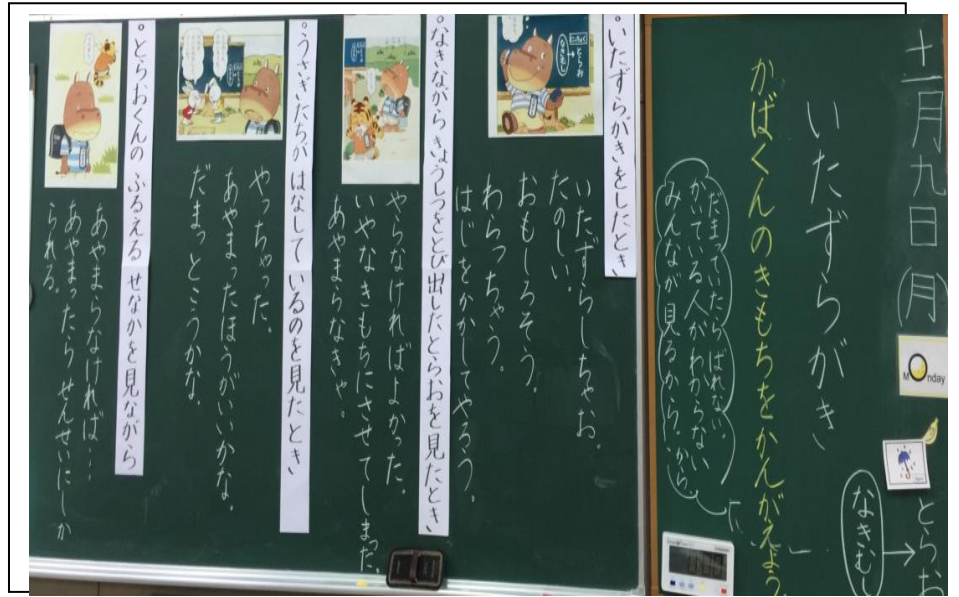 十一月九日(月)
Monday
とらお
なきむし
いたずらがき
かばくんのきもちをかんがえよう。
だまっていたらばれない。
かいている人がわからない
みんなが見るから。
から
。いたずらがきをしたとき
いたずらしちゃお。
たのしい。
おもしろそう。
わらっちゃう。
はじをかかしてやろう。
。なきながらきょうしつをとび出したとらおを見たとき
やらなければよかった。
いやなきもちにさせてしまった。
あやまらなきゃ。
。うさぎたちが はなして いるのを見たとき
やっちゃった。
あやまったほうがいいかな。
だまっとこうかな。
。とらおくんの ふるえる せなかを見ながら
あやまらなければ…
あやまったらせんせいにしか
られる。
とらお
なきむし